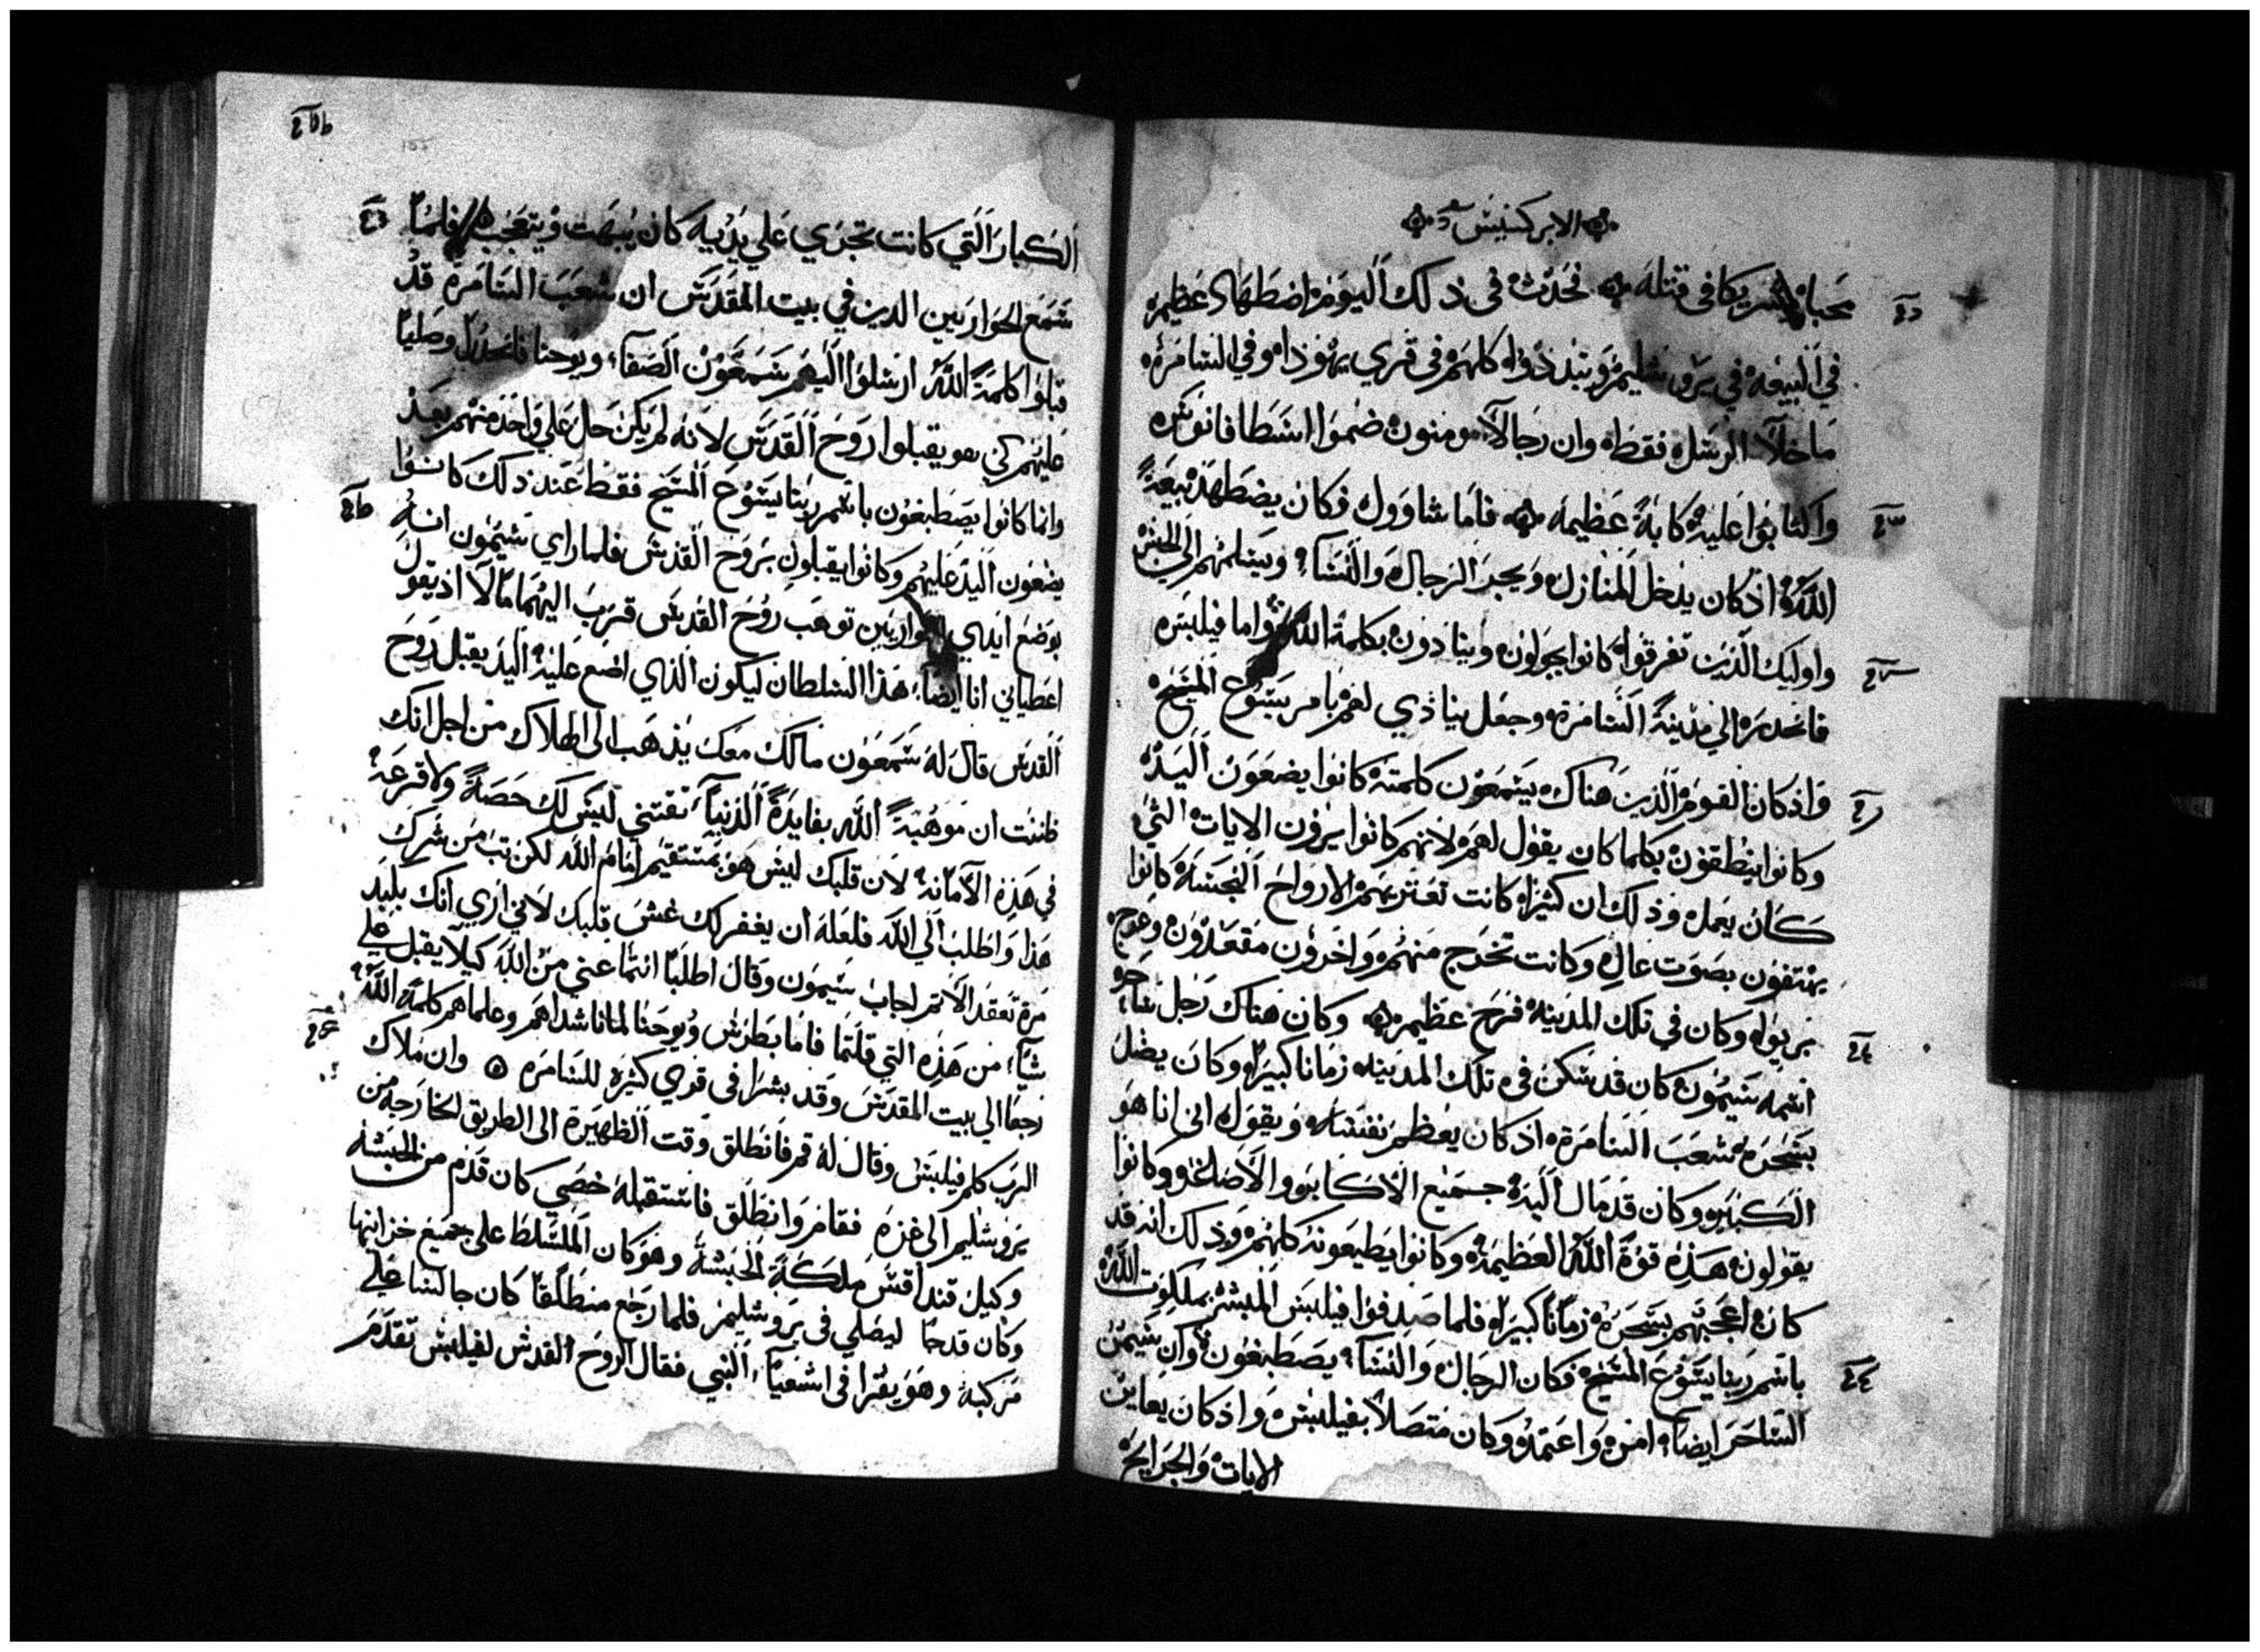 الابركسيس
محباه شريكا في قتله فحدث في ذلك اليوم اضطهاد عظيم
في البيعه في يروشليم وتبددوا كلهم في قري يهوذا وفي السامره
ما خلا الرسل فقط وان رجالا مومنون ضموا اسطافانوس
واكتابوا عليه كابة عظيمه فاما شاوول فكان يضطهد بيعة
الله اذ كان يدخل المنازل ويجر الرجال والنسا ويسلمهم الي الحبس
واوليك الذين تفرقوا كانوا يجولون وينادون بكلمة الله واما فيلبس
فانحدر الي مدينة السامره وجعل ينادي لهم بامر يسوع المسيح
واذ كان القوم الذين هناك يسمعون كلمته كانوا يضعون اليد
وكانوا ينطقون بكلما كان يقول لهم لانهم كانوا يرون الايات التي
كان يعمل وذلك ان كثيرا كانت تعتريهم الارواح النجسه كانوا
يهتفون بصوت عال وكانت تخرج منهم واخرون مقعدون وعرج
بريوا وكان في تلك المدينه فرح عظيم وكان هناك رجل ساحر
اسمه سيمون كان قد سكن في تلك المدينه زمانا كبيرا وكان يضل
بسحره شعب السامرة اذ كان يعظم نفسه ويقول اني انا هو
الكبير وكان قد مال اليه جميع الاكابر والاصاغر وكانوا
يقولون هذه قوة الله العظيمه وكانوا يطيعونه كلهم وذلك انه قد
كان اعجبهم بسحره زمانا كبيرا فلما صدفوا فيلبس المبشر بملكوت الله
باسم ربنا يسوع المسيح فكان الرجال والنسا يصطبغون وان سيمن
الساحر ايضا امن واعتمد وكان متصلا بفيلبس واذ كان يعاين
الايات والجرايح
الكبار التي كانت تجري علي يديه كان يبهت ويتعجب فلما
سمع الحواريين الدين في بيت المقدس ان شعب السامرة قد
قبلوا كلمة الله ارسلوا اليهم شمعون الصفا ويوحنا فانحدرا وصليا
عليهم كي هو يقبلوا روح القدس لانه لم يكن حل علي واحد منهم بعد
وانما كانوا يصطبغون باسم ربنا يسوع المسيح فقط عند ذلك كانوا
يضعون اليد عليهم وكانوا يقبلون بروح القدس فلما راي سيمون انه
بوضع ايدي الحواريين توهب روح القدس قرب اليهما مالا اذ يقول
اعطياني انا ايضا هذا السلطان ليكون الذي اضع عليه اليد يقبل روح
القدس قال له شمعون مالك معك يذهب الي الهلاك من اجل انك
ظننت ان موهبة الله بفايدة الدنيا تقتني ليس لك حصة ولا قرعه
في هذه الامانه لان قلبك ليس هو بمستقيم امام الله لكن تب من شرك
هذا واطلب الي الله فلعله ان يغفر لك غش قلبك لاني اري انك بلبد
مرة تعقد الاثم اجاب سيمون وقال اطلبا انتما عني من الله كيلا يقبل علي
شيا من هذه التي قلتما فاما بطرس ويوحنا لما ناشداهم وعلماهم كلمة الله
رجعا الي بيت المقدس وقد بشرا في قري كثيره للسامره وان ملاك
الرب كلم فيلبس وقال له قم فانطلق وقت الظهيرة الي الطريق الخارجه من
يروشليم الي غزه فقام وانطلق فاستقبله خصي كان قدم من الحبشه
وكيل قنداقس ملكة الحبشة وهو كان المسلط علي جميع خزاينها
وكان قد جا ليصلي في يروشليم فلما رجع منطلقا كان جالسا علي
مركبه وهو يقرا في اشعيا النبي فقال الروح القدس لفيلبس تقدم